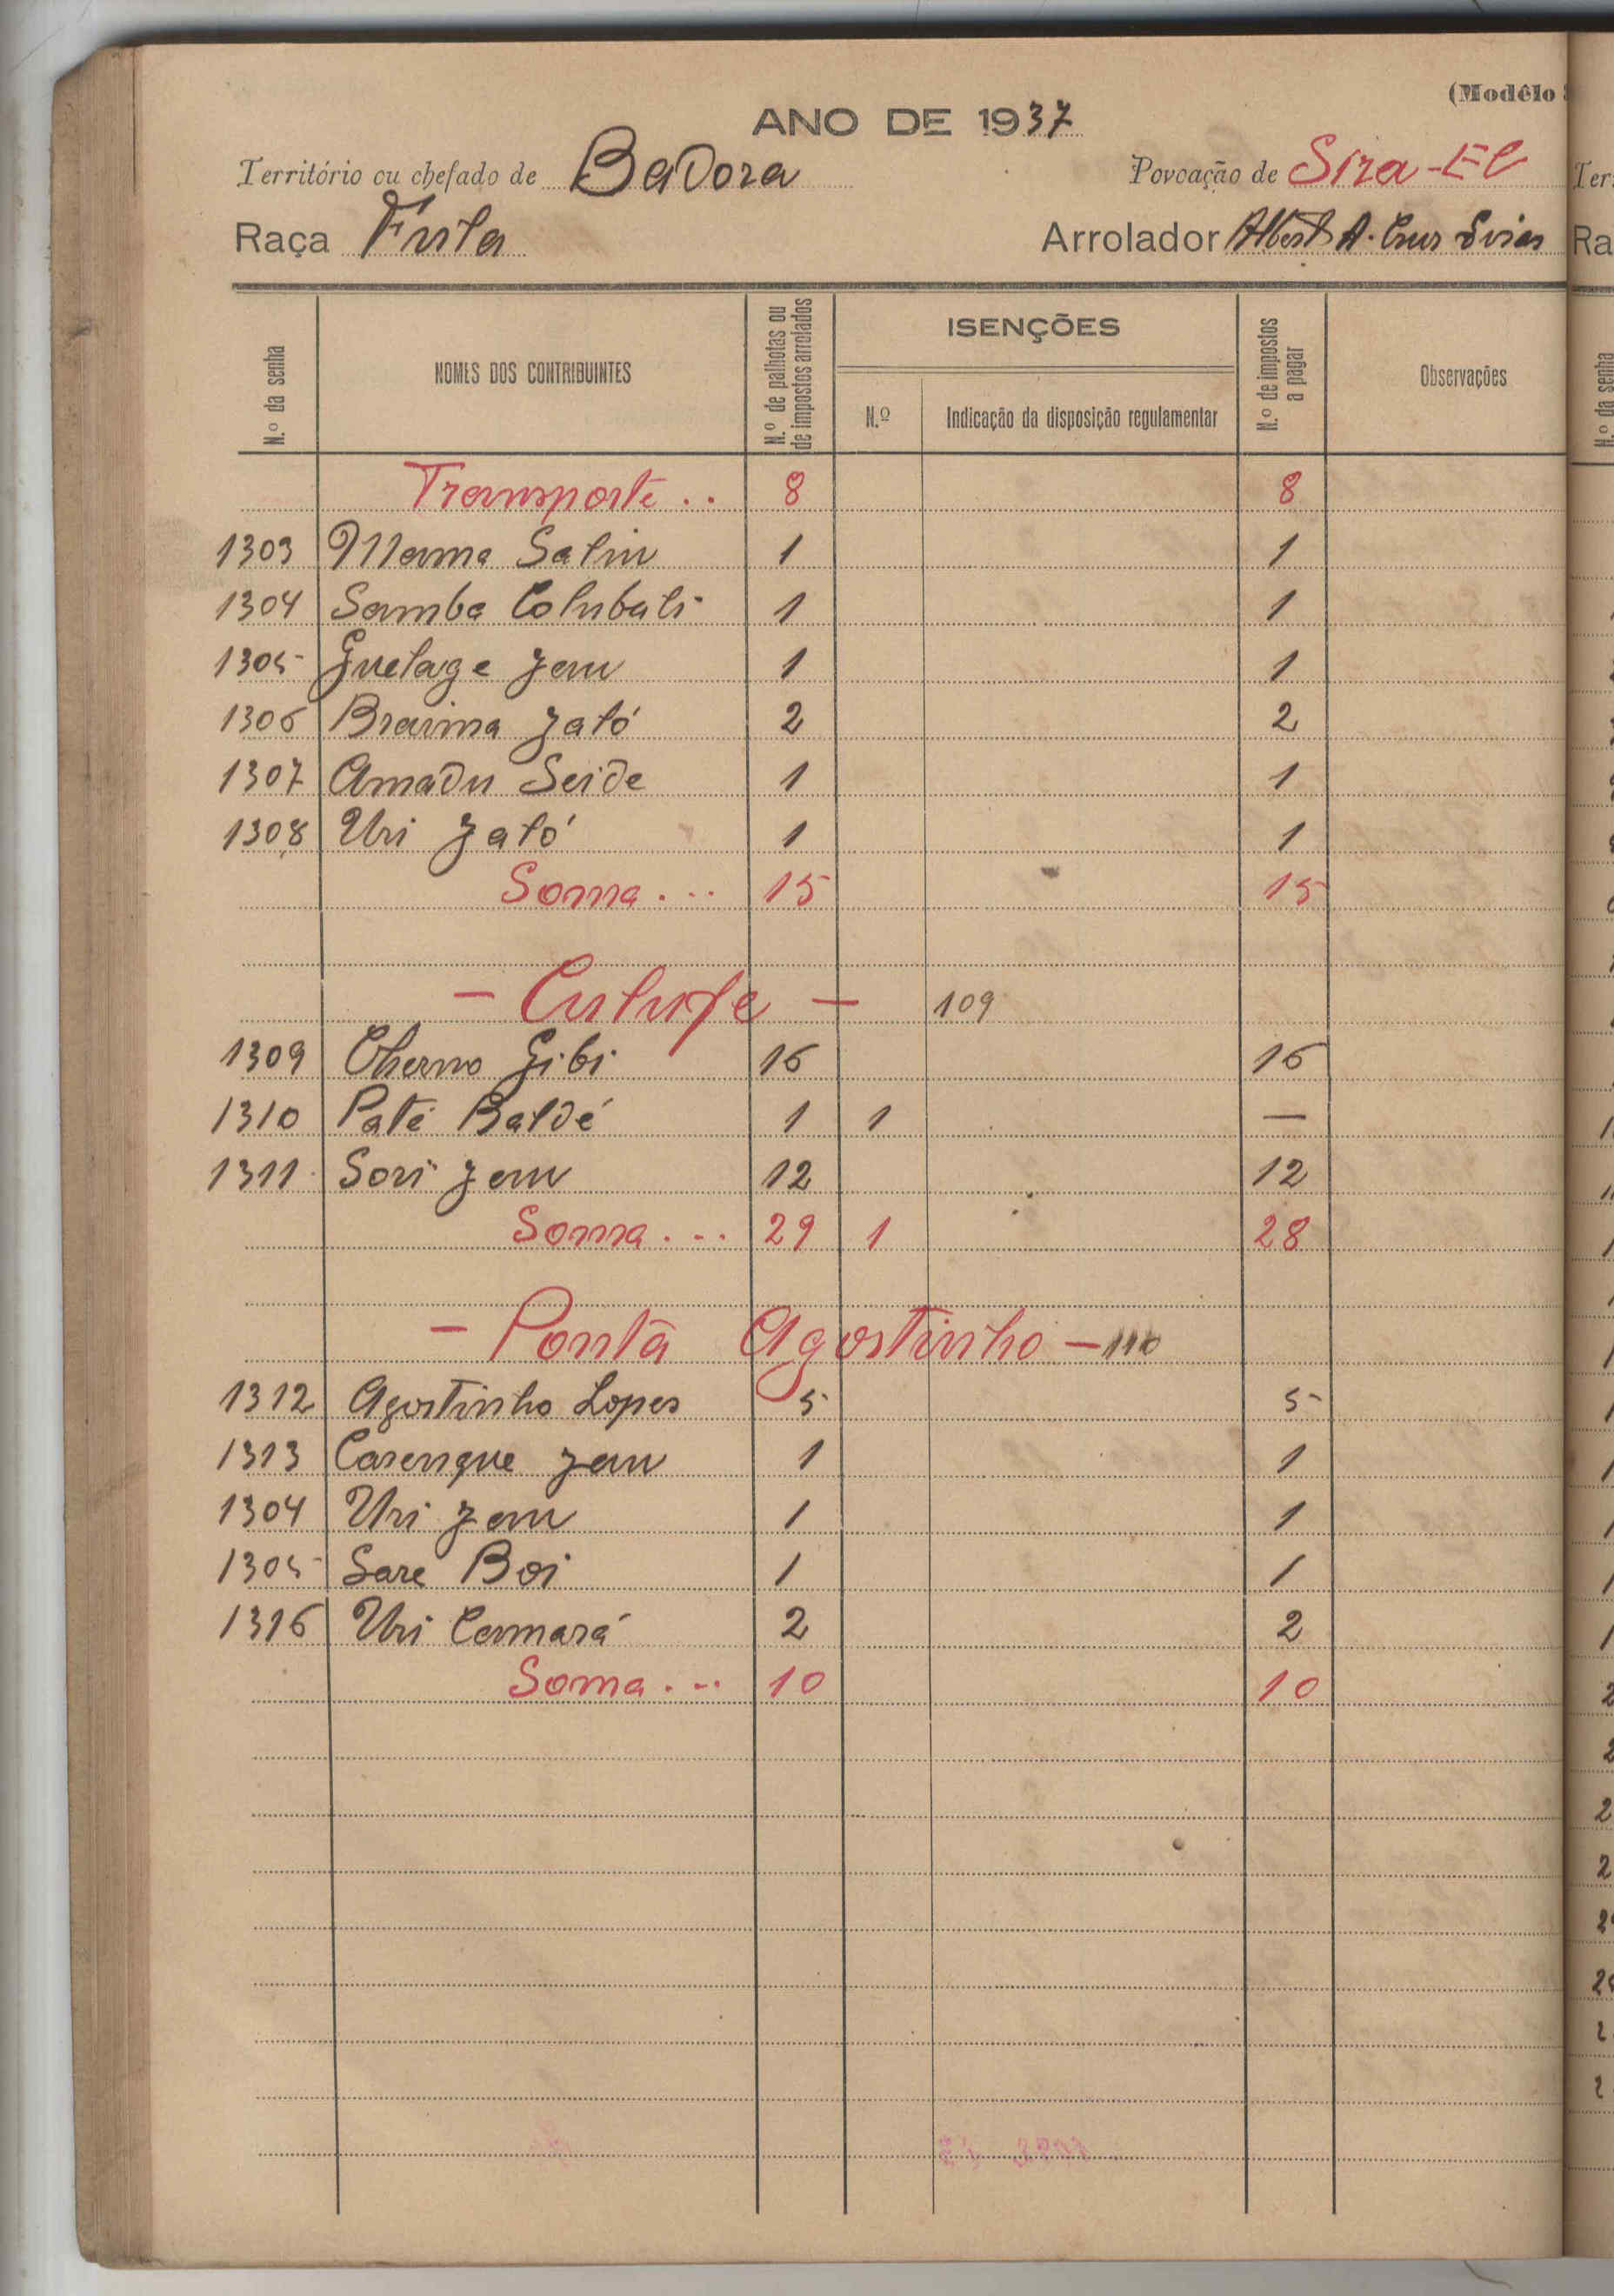 (Modêlo
ANO DE 1937
Território ou chefado de Badora Povoação de Sira-El
Raça Fula Arrolador Albert A. Cruz
N.º da senha NOMES DOS CONTRIBUINTES N.º de palhotas ou de impostos arrolados ISENÇÕES N.º Indicação da disposição regulamentar N.º de impostos a pagar Observações
Transporte .. 8 8
1303 Mama Saliu 1 1
1304 Samba Colubali 1 1
1305 Guelage Jau 1 1
1306 Braima Jaló 2 2
1307 Amadu Seide 1 1
1308 Uri Jaló 1 1
Soma ... 15 15
- Culufe - 109
1309 Cherno Gibi 16 16
1310 Paté Baldé 1 1 —
1311 Sori Jau 12 12
Soma ... 29 1 28
- Ponta Agostinho - 110
1312 Agostinho Lopes 5 5
1313 Carenque Jau 1 1
1304 Uri Jau 1 1
1305 Sare Boi 1 1
1316 Uri Camará 2 2
Soma ... 10 10